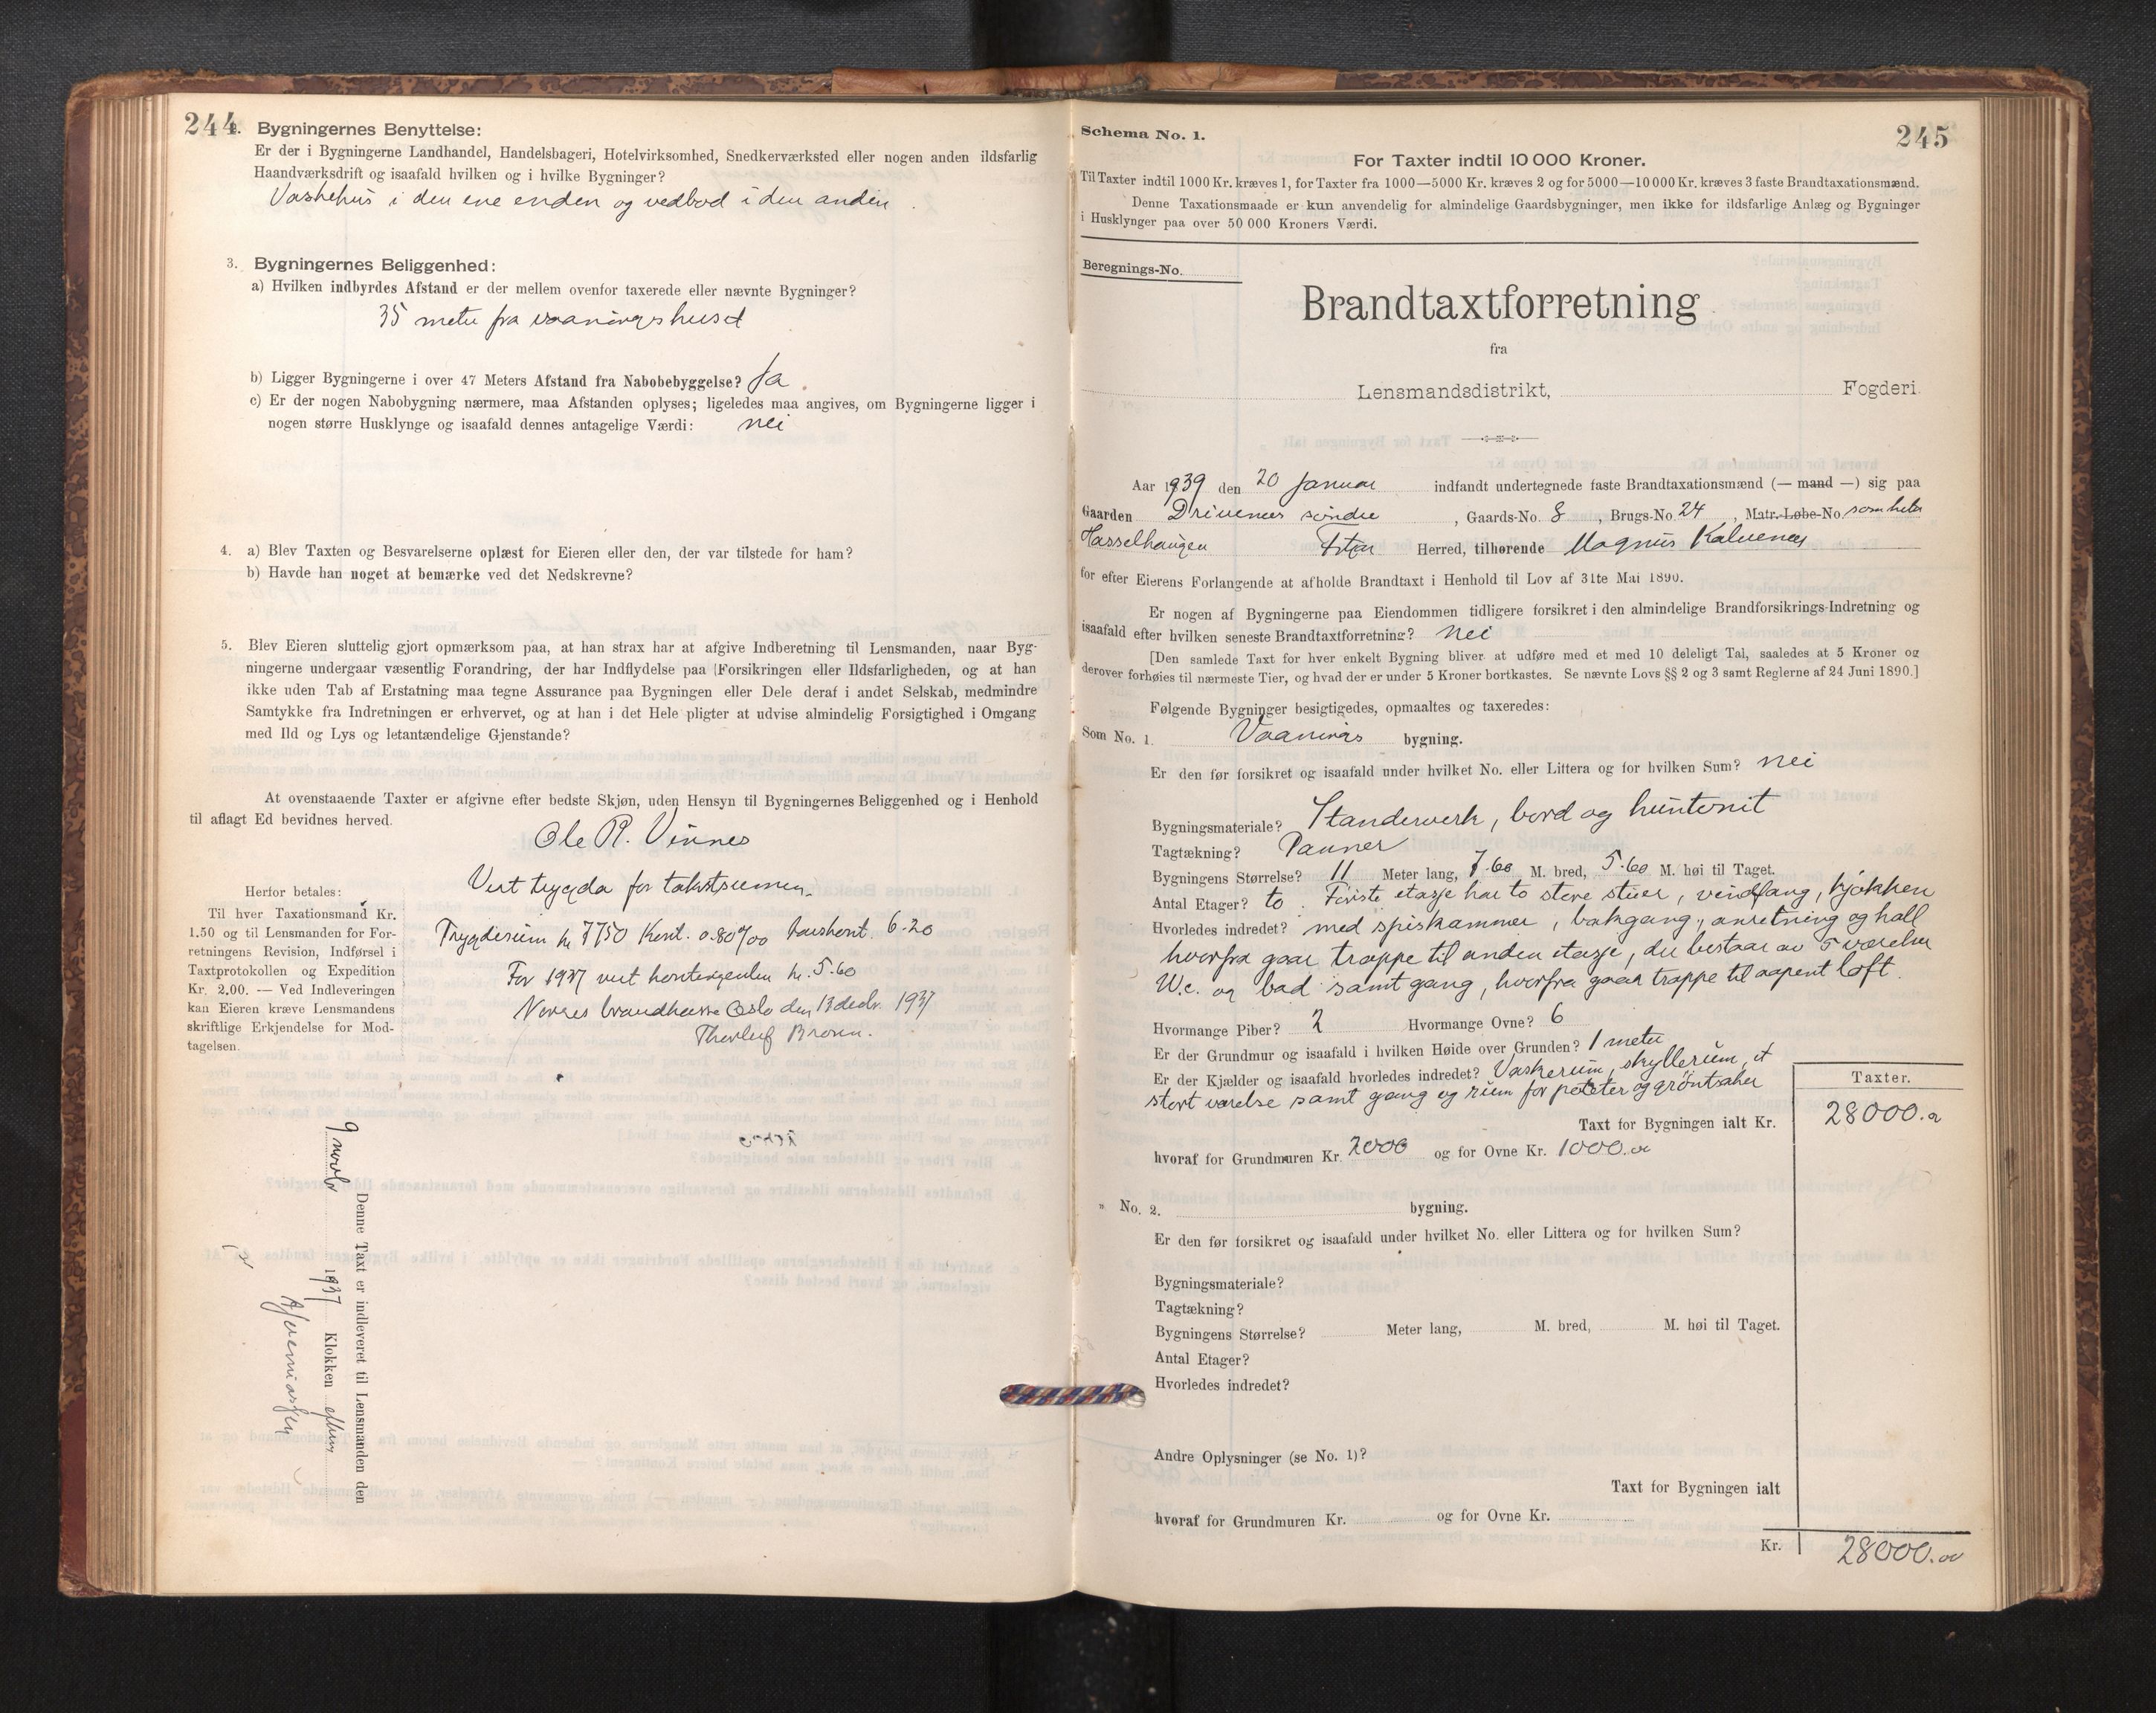 244
2. Bygningernes Benyttelse:
Er der i Bygningerne Landhandel, Handelsbageri, Hotelvirksomhed, Snedkerværksted eller nogen anden ildsfarlig
Haandværksdrift og isaafald hvilken og i hvilke Bygninger?
Vaskehus i den ene enden og vedbod i den anden.
3. Bygningernes Beliggenhed:
a) Hvilken indbyrdes Afstand er der mellem ovenfor taxerede eller nævnte Bygninger?
35 meter fra vaaningshuset
b) Ligger Bygningerne i over 47 Meters Afstand fra Nabobebyggelse? Ja.
c) Er der nogen Nabobygning nærmere, maa Afstanden oplyses; ligeledes maa angives, om Bygningerne ligger i
nogen større Husklynge og isaafald dennes antagelige Værdi: nei
4. a) Blev Taxten og Besvarelserne oplæst for Eieren eller den, der var tilstede for ham?
b) Havde han noget at bemærke ved det Nedskrevne?
5. Blev Eieren sluttelig gjort opmærksom paa, at han strax har at afgive Indberetning til Lensmanden, naar Byg-
ningerne undergaar væsentlig Forandring, der har Indflydelse paa Forsikringen eller Ildsfarligheden, og at han
ikke uden Tab af Erstatning maa tegne Assurance paa Bygningen eller Dele deraf i andet Selskab, medmindre
Samtykke fra Indretningen er erhvervet, og at han i det Hele pligter at udvise almindelig Forsigtighed i Omgang
med Ild og Lys og letantændelige Gjenstande?
At ovenstaaende Taxter er afgivne efter bedste Skjøn, uden Hensyn til Bygningernes Beliggenhed og i Henhold
til aflagt Ed bevidnes herved.
Ole R. Vinnes
Herfor betales:
Til hver Taxationsmand Kr.
1.50 og til Lensmanden for For-
retningens Revision, Indførsel i
Taxtprotokollen og Expedition
Kr. 2.00. — Ved Indleveringen
kan Eieren kræve Lensmandens
skriftlige Erkjendelse for Mod-
tagelsen.
Vert trygda for takstsummen.
Trygdesum kr 7750 Kont. 0.80 ‰ 6.20
For 1937 vert kontingenten kr. 5.60
Norges brandkasse Oslo den 13 decbr. 1937
Denne Taxt er indleveret til Lensmanden den
9 novbr 1937 Klokken efterm
245
Schema No. 1.
For Taxter indtil 10 000 Kroner.
Til Taxter indtil 1000 Kr. kræves 1, for Taxter fra 1000—5000 Kr. kræves 2 og for 5000—10 000 Kr. kræves 3 faste Brandtaxationsmænd.
Denne Taxationsmaade er kun anvendelig for almindelige Gaardsbygninger, men ikke for ildsfarlige Anlæg og Bygninger
i Husklynger paa over 50 000 Kroners Værdi.
Beregnings-No.
Brandtaxtforretning
fra
Lensmandsdistrikt, Fogderi.
Aar 1939 den 20 Januar indfandt undertegnede faste Brandtaxationsmænd (— mand —) sig paa
Gaarden Drivenes søndre, Gaards-No. 8, Brugs-No. 24, Matr.-Løbe-No som heter
Hasselhaugen Fitjar Herred, tilhørende Magnus Kalvenes
for efter Eierens Forlangende at afholde Brandtaxt i Henhold til Lov af 31te Mai 1890.
Er nogen af Bygningerne paa Eiendommen tidligere forsikret i den almindelige Brandforsikrings-Indretning og
isaafald efter hvilken seneste Brandtaxtforretning? nei
[Den samlede Taxt for hver enkelt Bygning bliver at udføre med et med 10 deleligt Tal, saaledes at 5 Kroner og
derover forhøies til nærmeste Tier, og hvad der er under 5 Kroner bortkastes. Se nævnte Lovs §§ 2 og 3 samt Reglerne af 24 Juni 1890.]
Følgende Bygninger besigtigedes, opmaaltes og taxeredes:
Som No. 1. Vaanings bygning.
Er den før forsikret og isaafald under hvilket No. eller Littera og for hvilken Sum? nei
Bygningsmateriale? Standerverk, bord og huntonit
Tagtækning? Panner
Bygningens Størrelse? 11 Meter lang, 7.60 M. bred, 5.60 M. høi til Taget.
Antal Etager? to. Første etasje har to store stuer, vindfang, kjøkken
Hvorledes indredet? med spiskammer, bakgang, anretning og hall
hvorfra gaar trappe til anden etasje, der bestaar av 5 værelser
W.c. og bad samt gang, hvorfra gaar trappe til aapent loft.
Hvormange Piber? 2 Hvormange Ovne? 6
Er der Grundmur og isaafald i hvilken Høide over Grunden? 1 meter
Er der Kjælder og isaafald hvorledes indredet? Vaskerum, skyllerum, et
stort værelse samt gang og rum for poteter og grøntsaker
Taxter.
Taxt for Bygningen ialt Kr. 28000.00
hvoraf for Grundmuren Kr. 2000 og for Ovne Kr. 1000.00
" No. 2. bygning.
Er den før forsikret og isaafald under hvilket No. eller Littera og for hvilken Sum?
Bygningsmateriale?
Tagtækning?
Bygningens Størrelse? Meter lang, M. bred, M. høi til Taget.
Antal Etager?
Hvorledes indredet?
Andre Oplysninger (se No. 1)?
Taxt for Bygningen ialt
hvoraf for Grundmuren Kr. og for Ovne Kr.
Kr. 28000.00